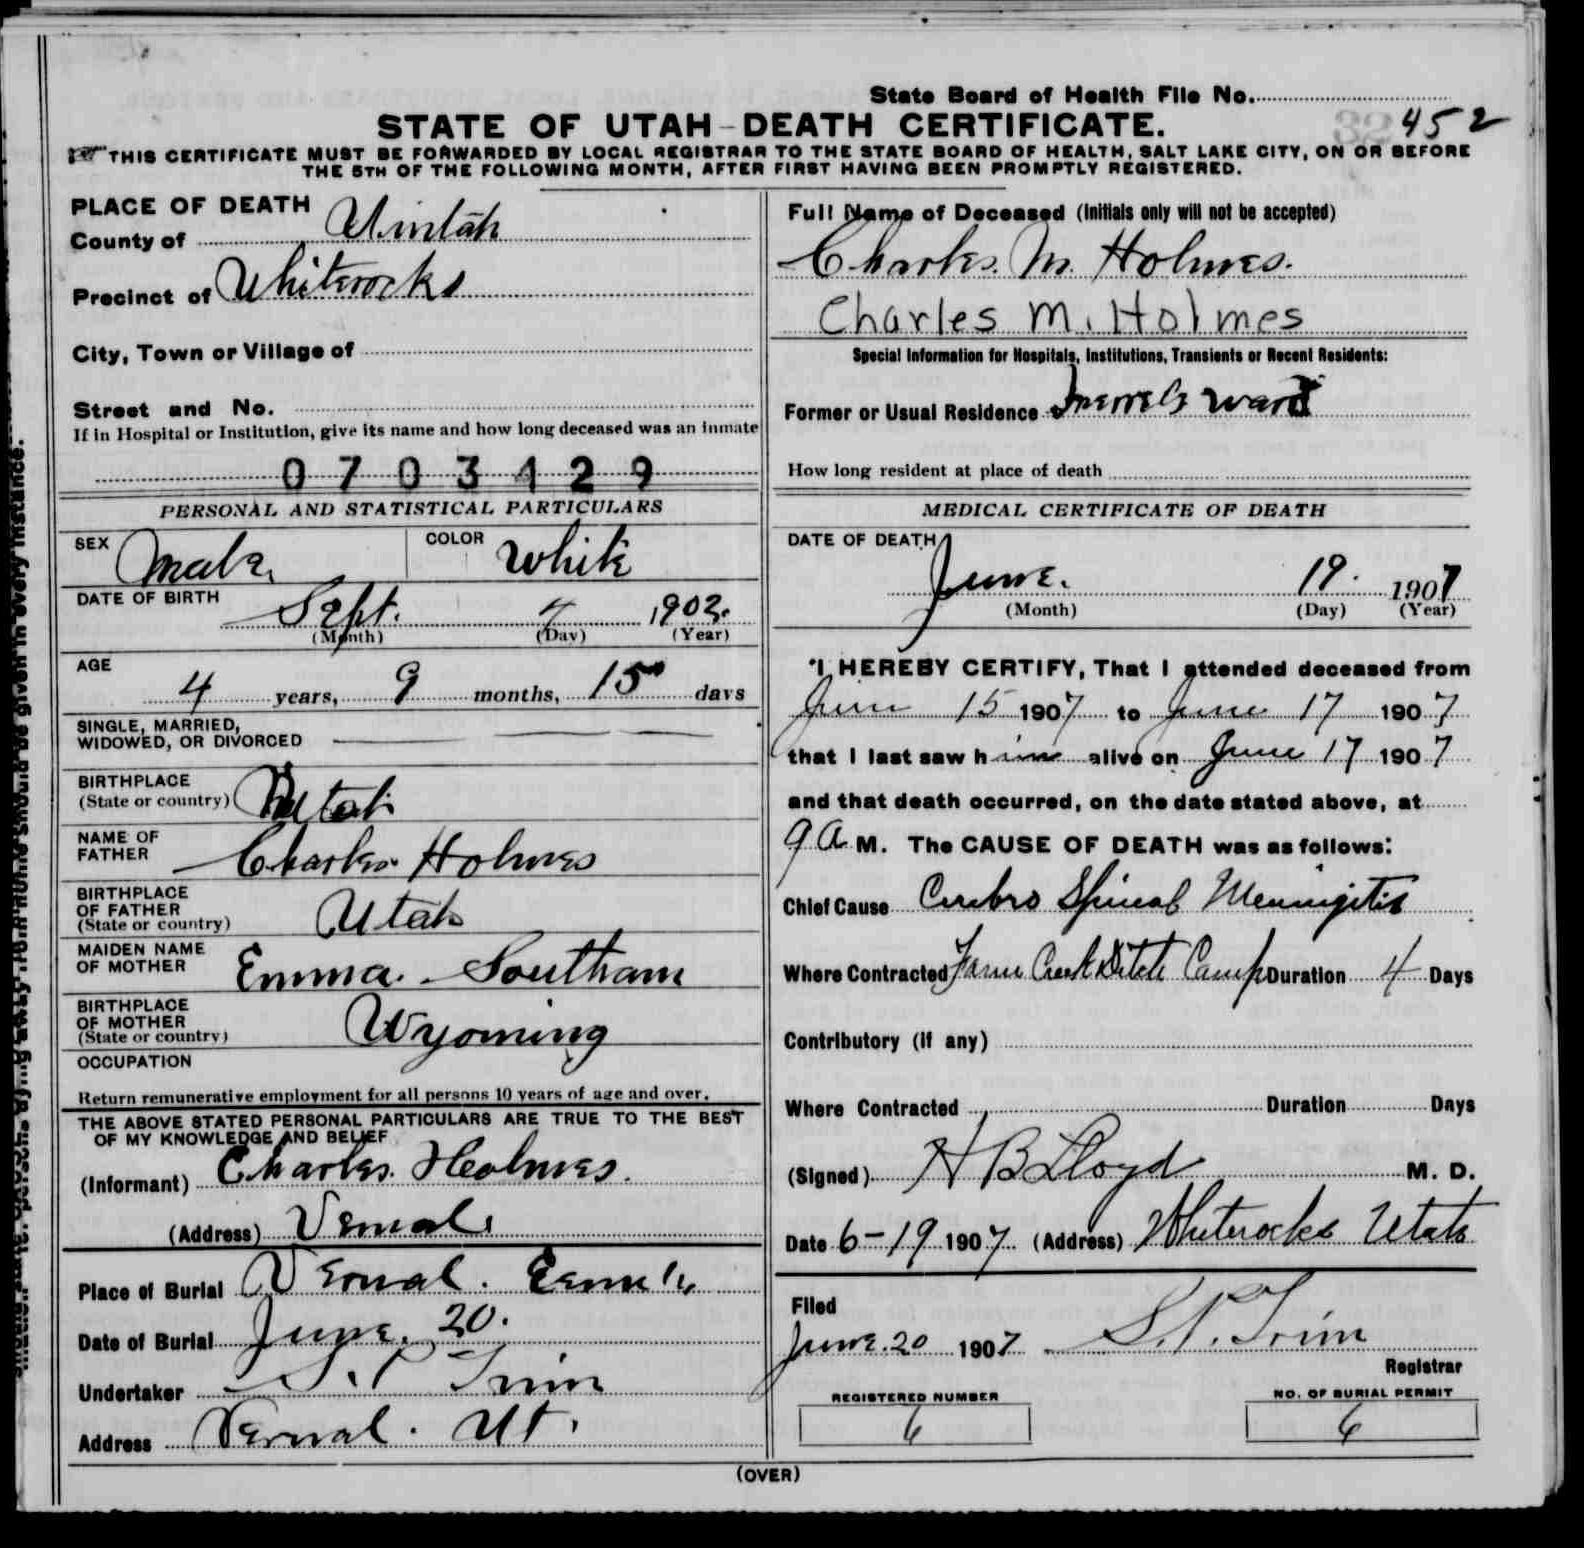 State Board of Health File No.
452
STATE OF UTAH - DEATH CERTIFICATE.
THIS CERTIFICATE MUST BE FORWARDED BY LOCAL REGISTRAR TO THE STATE BOARD OF HEALTH, SALT LAKE CITY, ON OR BEFORE
THE 5TH OF THE FOLLOWING MONTH, AFTER FIRST HAVING BEEN PROMPTLY REGISTERED.
PLACE OF DEATH
County of Uintah
Precinct of Whiterocks
City, Town or Village of
Street and No.
If in Hospital or Institution, give its name and how long deceased was an inmate
0703429
PERSONAL AND STATISTICAL PARTICULARS
SEX Male. COLOR White
DATE OF BIRTH Sept. 4 1902.
(Month) (Day) (Year)
AGE
4 years, 9 months, 15 days
SINGLE, MARRIED,
WIDOWED, OR DIVORCED
BIRTHPLACE
(State or country) Utah
NAME OF
FATHER Charles Holmes
BIRTHPLACE
OF FATHER
(State or country) Utah
MAIDEN NAME
OF MOTHER Emma. Southam
BIRTHPLACE
OF MOTHER
(State or country) Wyoming
OCCUPATION
Return remunerative employment for all persons 10 years of age and over.
THE ABOVE STATED PERSONAL PARTICULARS ARE TRUE TO THE BEST
OF MY KNOWLEDGE AND BELIEF
(Informant) Charles. Holmes.
(Address) Vernal.
Place of Burial Vernal.
Date of Burial June. 20.
Undertaker S. P. Trim
Address Vernal. Ut.
Full Name of Deceased (Initials only will not be accepted)
Charles. M. Holmes.
Charles M. Holmes
Special Information for Hospitals, Institutions, Transients or Recent Residents:
Former or Usual Residence Ward
How long resident at place of death
MEDICAL CERTIFICATE OF DEATH
DATE OF DEATH
June. 19. 1907
(Month) (Day) (Year)
I HEREBY CERTIFY, That I attended deceased from
June 15 1907 to June 17 1907
that I last saw him alive on June 17 1907
and that death occurred, on the date stated above, at
9 a M. The CAUSE OF DEATH was as follows:
Chief Cause Cerebro Spinal Meningitis
Where Contracted Farm Creek Ditch Camp Duration 4 Days
Contributory (if any)
Where Contracted Duration Days
(Signed) H B Lloyd M. D.
Date 6-19 1907 (Address) Whiterocks Utah
Filed
June. 20 1907 S. P. Trim
Registrar
REGISTERED NUMBER NO. OF BURIAL PERMIT
6 6
(OVER)